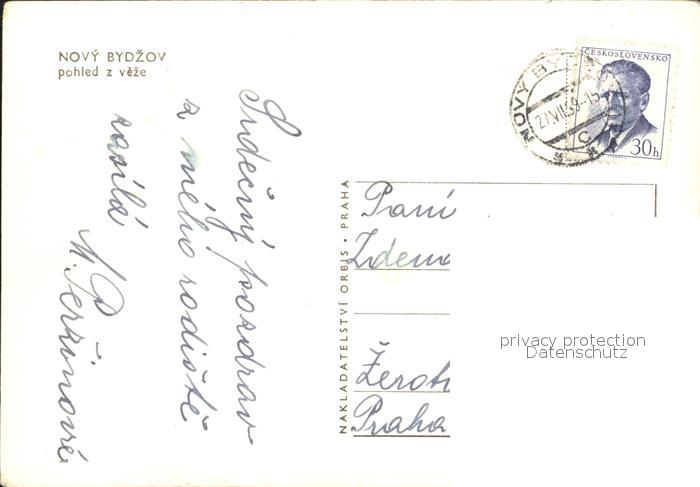 NOVÝ BYDŽOV
pohled z věže
Srdečný pozdrav
z mého rodiště
zasílá
M.
NAKLADATELSTVÍ ORBIS • PRAHA
ČESKOSLOVENSKO
30h
NOVÝ BYDŽOV
27.VII.59-15
C
Paní
Zdena
Žerot
Praha
privacy protection
Datenschutz